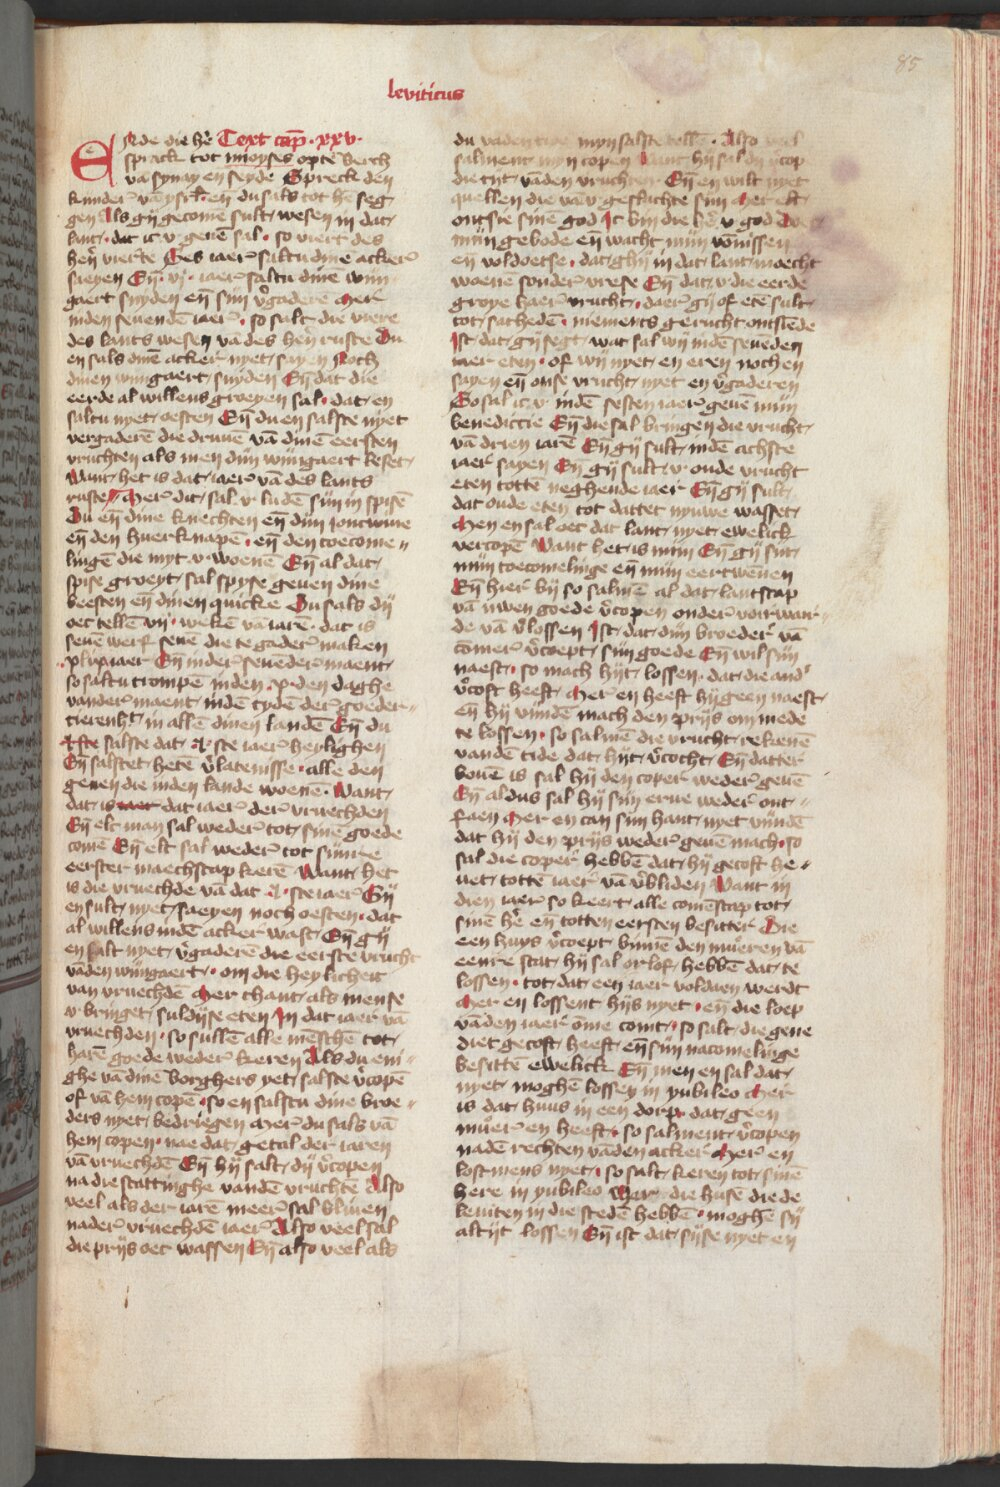 85
leviticus
Ende die hẻ Text cap̄ · xxv ·
sprack tot moyses optē berch
vā synay en̄ seyde Spreck den
kynder vā ysrl̄ · en̄ du sals tot hē seg
gen Als gij gecomē sult wesen in dat
lant · dat ic v geuē sal · so viert des
herē vierte Ses iaer saltu dinē acker
saeyen En̄ · vj · iaer saltu dinē wijn
gaert snyden en̄ sijn v̉gaderē Mer
inden seuendē iaer · so salt die viere
des lants wesen vā des herē ruste Du
en sals dinē acker nyet sayen Noch
dinen wijngaert snyden En̄ dat die
eerde al willens groyen sal · dat en
saltu nyet oesten En̄ du en salste nyet
vergaderē die druuē vā dinē eersten
vruchten als men dijn wijngaert leset
Want het is dat iaer vā des lants
ruste Mer dit sal v ludē sijn in spisē
Du en̄ dine knechten en̄ dijn ioncwiue
en̄ den huerknapē · en̄ den toecome〃
lingē die myt v woenē En̄ al dat
spise groeyt sal spyse geuen dine
beesten en̄ dinen quicke Du sals dij
oec tellē vij wekē vā iarē · dat is
seuē werf seuē die te gader maken
· xlix iaer En̄ inder seuēder maent
so saltu trompē inden · x · den daghe
vander maent indē tydē der goeder〃
tierenht̄ in allē dinen landē En̄ du
salste dat · L · ste iaer heylighen
En̄ salstet hetē v̉latenisse · alle den
genen die inden lande woenē · Want
dat is dat iaer der vruechden
En̄ elc man sal weder tot sinē goede
comē En̄ elc sal weder tot sijnre
eerster maechscap kerē Want het
is die vruechde vā dat · L · ste iaer Gij
en sult nyet saeyen noch oesten · dat
al willens indē acker wast En̄ gij
en salt nyet v̉gaderē die eerste vrucht
vāden wijngaert · om die heylicheit
van vruechdē Mer thant als mense
v bringet suldijse eten In dat iaer vā
vruechden · so sullē alle mēschē tot
harē goede weder kieren Als du eni〃
ghe vā dinē borghers yet salste v̉copē
of vā hem copē · so en salstu dinē broe〃
ders nyet bedriegen Mer du sals vā
hem copen · nae dat getal der iaren
vā vruechdē En̄ hij salt dij v̉copen
na die scattinghe vandē vruchtē Also
veel als der iarē meer sal bliuen
nader vruechdē iaer Also veel sal
die prijs oec wassen En̄ also veel als
du vaden tide myn salste tellē · Also veel
salment myn copen Want hij sal dij v̉cop
die tijt vāden vruchten En̄ en wilt nyet
quellen die vā v geslachte sijn Mer elc
ontsie sinē god Ic bin die hẻ v god Doet
mijn gebode en̄ wacht mijn vōnissen
en̄ voldoetse · dat ghij in dat lant moecht
woenē sonder vrese En̄ dat v die eerde
groye haer vrucht · daer gij of etē sult
tot sathedē · niements gerucht ontsiēde
Ist dat gij segt wat sal wij indē seuēden
iaer eten · of wij nyet en eren noch en
sayen en̄ onse vrucht nyet en v̉gaderen
So sal ic v indē sesten iaer geuē mijn
benedictie En̄ die sal bringen die vrucht
vā drien iarē En̄ gij sult indē achste
iaer sayen En̄ gij sult v oude vrucht
eten tottē neghende iaer En̄ gij sult
dat oude eten tot dattet nyuwe wasset
Men en sal oec dat lant nyet ewelick
vercopē Want het is mijn En̄ gij sijt
mijn toecomelinge en̄ mijn eertwēnen
En̄ hier bij so salmē al dat lantscap
vā uwen goede v̉copen onder voirwar〃
de vā v̉lossen Ist dat dijn broeder vā
cōmer v̉coept sijn goede En̄ wil sijn
naest · so mach hijt lossen · dat die and̉
v̉coft heeft Mer en heeft hij geen naest
en̄ hij vijndē mach den prijs om mede
te lossen · so salmē die vrucht rekenē
vandē tide dat hijt v̉cocht · En̄ datter
bouē is sal hij den coper weder geuē
En̄ aldus sal hij sijn erue weder ont〃
faen Mer en can sijn hant nyet vijndē
dat hij den prijs weder geuē mach · so
sal die coper hebbē dat hij gecoft he〃
uet tottē iaer vā v̉bliden Want in
dien iaer so keert alle comēscap tot
sinē hẻ en̄ totten eersten besitter Die
een huys v̉coept binnē den mueren vā
eenre stat hij sal orlof hebbē dat te
lossen · tot dat een iaer voldaen werdt
Mer en lossent hijs nyet · en̄ die loep
vāden iaer ōme comt · so salt die gene
diet gecoft heeft en̄ sijn nacomelinge
besittē ewelick En̄ men en sal dat
nyet moghē lossen in yubileo Mer
is dat huus in een dorp · dat geen
muer en heeft · so salment v̉copen
nadē rechten vāden acker Mer en
lostmens nyet · so salt keren tot sinē
here in yubileo Mer die husē die de
leuiten in die stedē hebbē · moghē sij
altijt lossen En̄ ist dat sijse nyet en